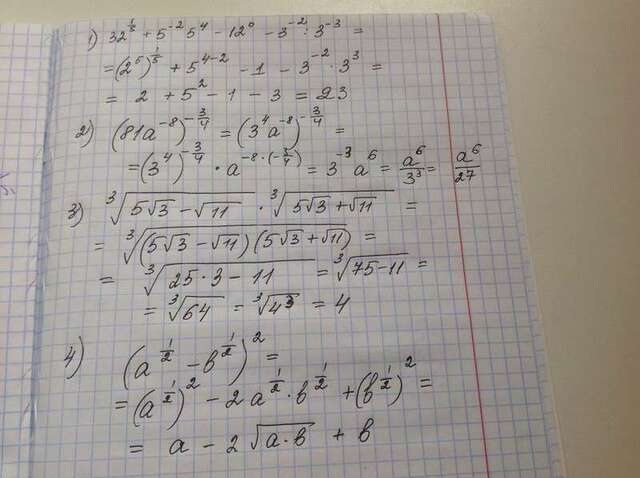 1) 32^(1/5) + 5^(-2) 5^4 - 12^0 - 3^(-2) : 3^(-3) =
= (2^5)^(1/5) + 5^(4-2) - 1 - 3^(-2) · 3^3 =
= 2 + 5^2 - 1 - 3 = 23
2) (81a^(-8))^(-3/4) = (3^4 a^(-8))^(-3/4) =
= (3^4)^(-3/4) · a^(-8·(-3/4)) = 3^(-3) a^6 = a^6/3^3 = a^6/27
3) ∛(5√3 - √11) · ∛(5√3 + √11) =
= ∛((5√3 - √11)(5√3 + √11)) =
= ∛(25·3 - 11) = ∛(75-11) =
= ∛64 = ∛(4^3) = 4
4) (a^(1/2) - b^(1/2))^2 =
= (a^(1/2))^2 - 2a^(1/2) · b^(1/2) + (b^(1/2))^2 =
= a - 2√(a·b) + b